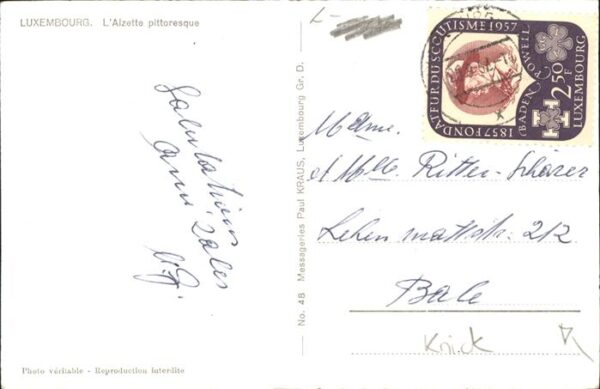 LUXEMBOURG. L'Alzette pittoresque
Salutations
amicales
Mdme.
et Mlle. Ritter-Schärer
Lehenmattstr. 212
Bale
Knick
No. 48 Messageries Paul KRAUS, Luxembourg Gr. D.
Photo véritable - Reproduction interdite
1857 FONDATEUR DU SCOUTISME 1957
(BADEN POWELL)
2,50 F
LUXEMBOURG